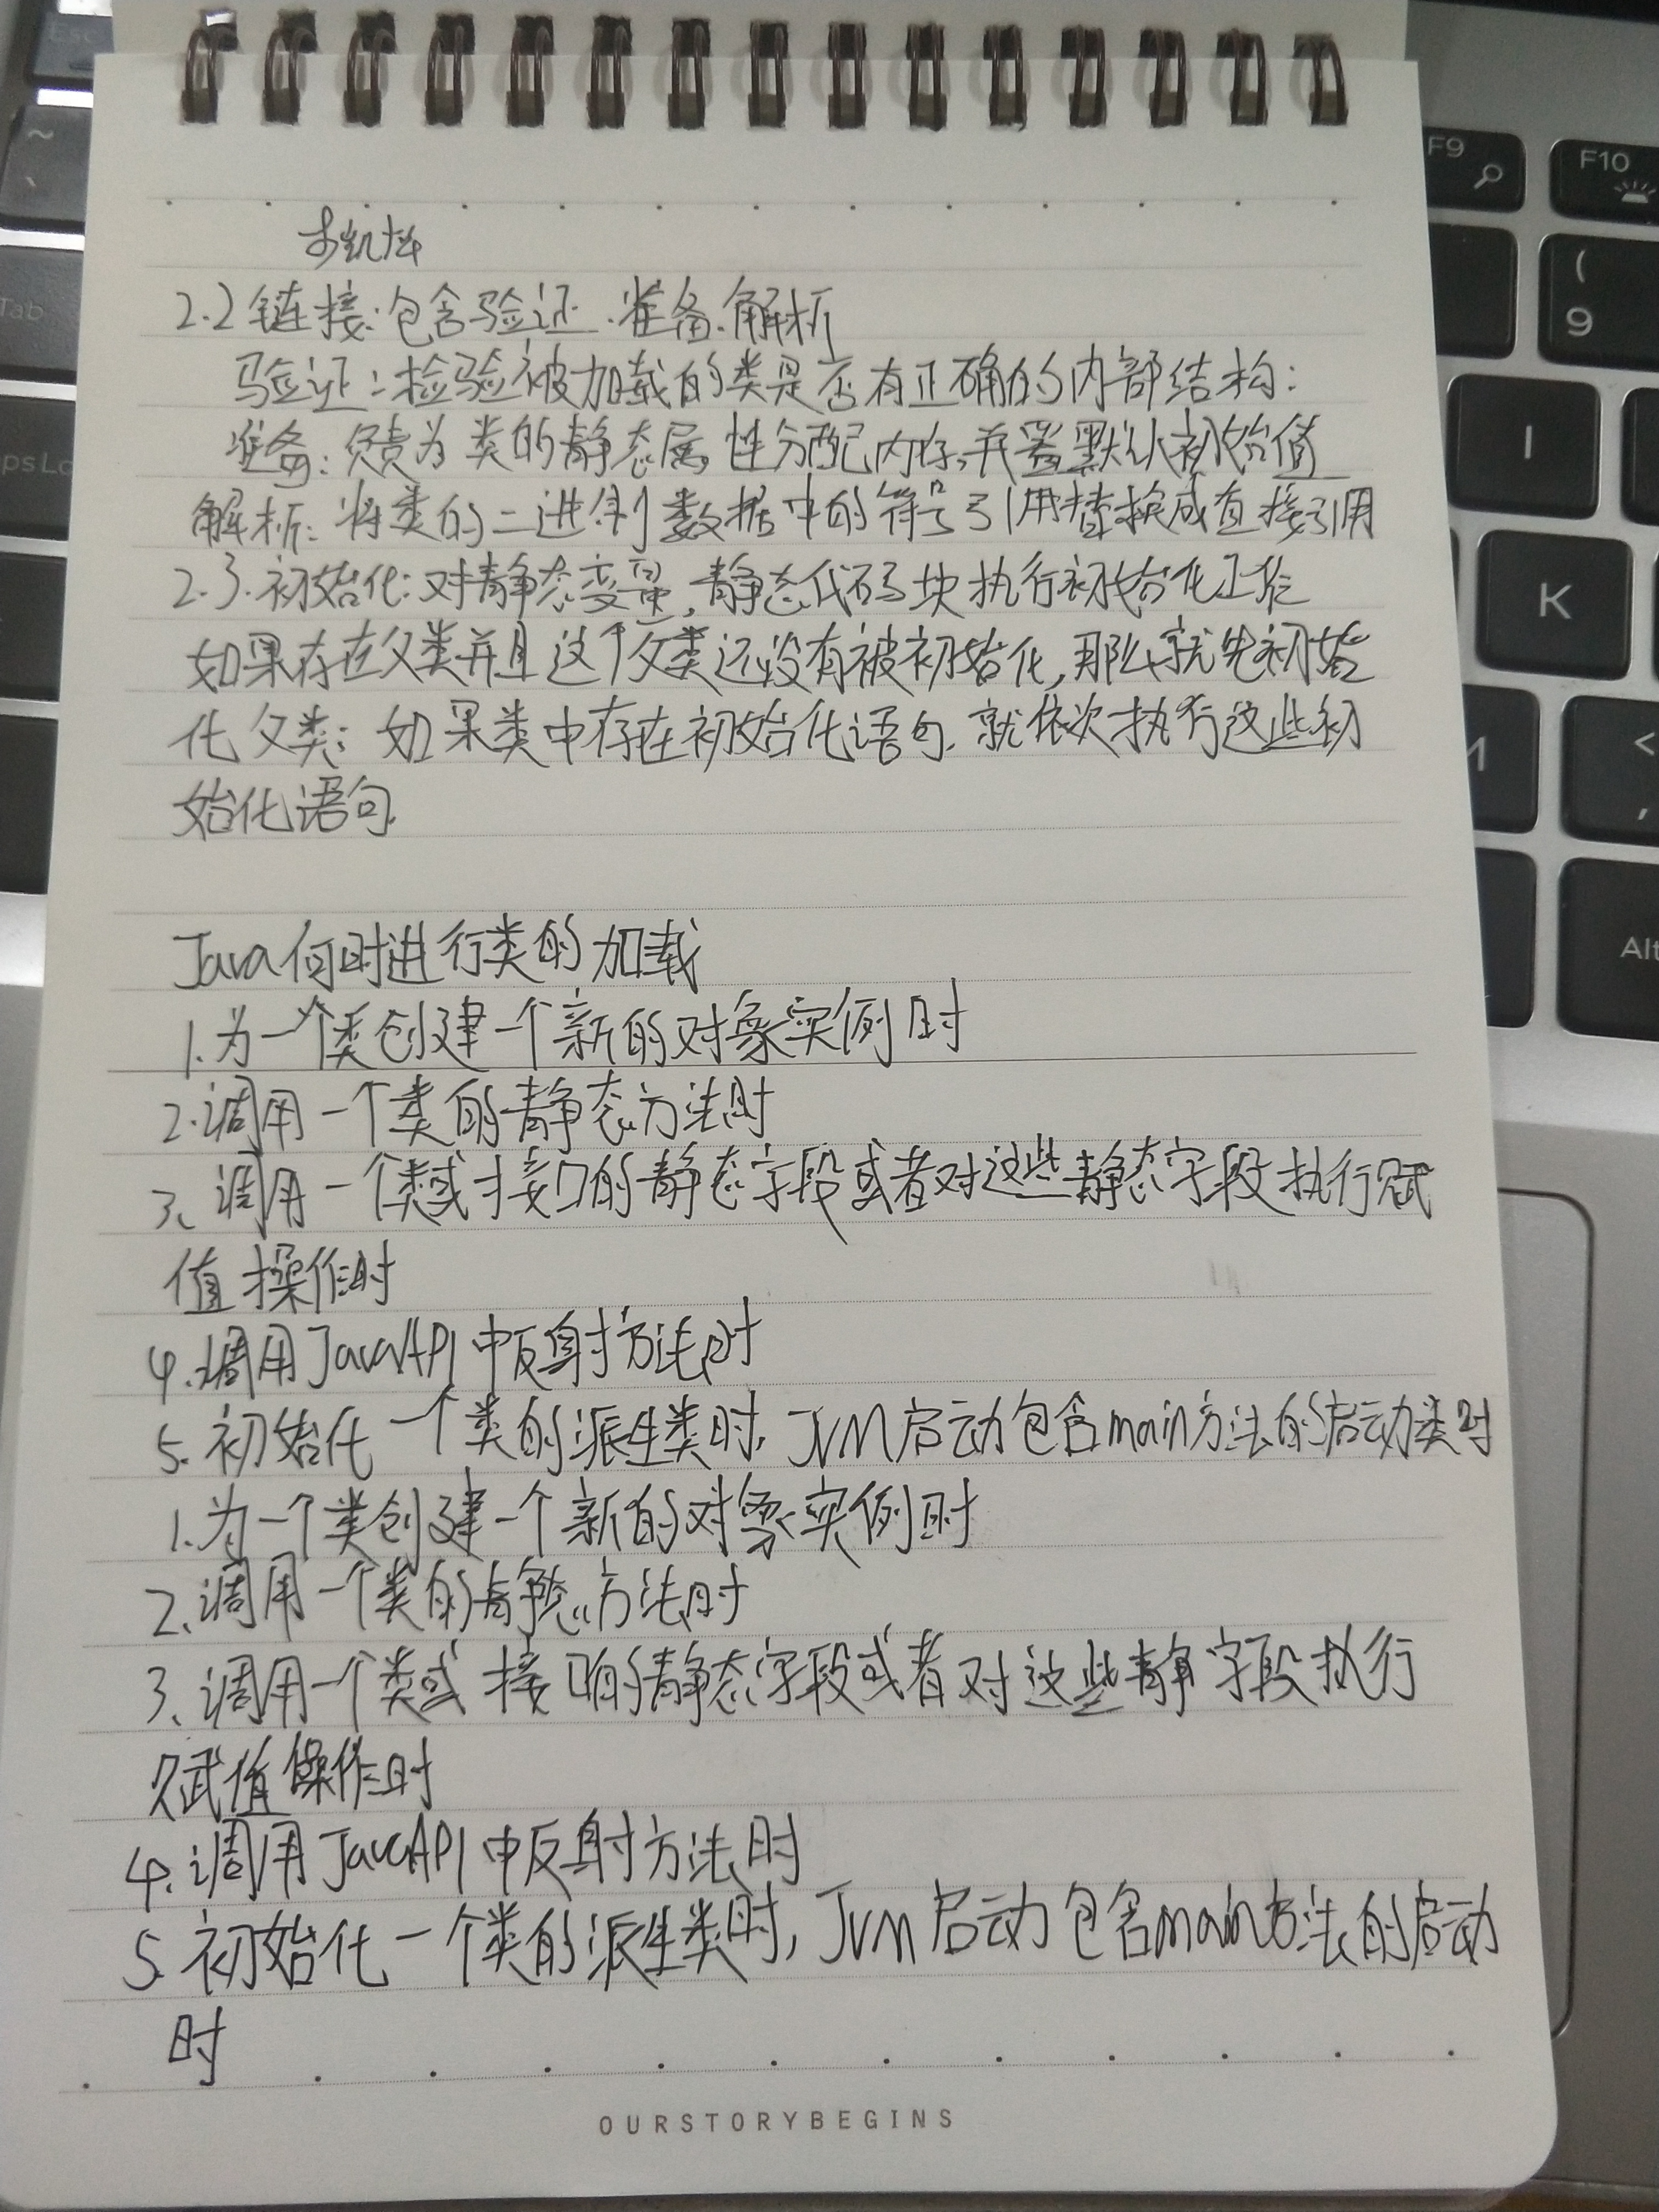 2.2 链接:包含验证、准备、解析
验证:检验被加载的类是否有正确的内部结构;
准备:负责为类的静态属性分配内存,并置默认初始值
解析:将类的二进制数据中的符号引用替换成直接引用
2.3.初始化:对静态变量,静态代码块执行初始化工作
如果存在父类并且这个父类还没有被初始化,那么就先初始
化父类;如果类中存在初始化语句.就依次执行这些初
始化语句.
Java何时进行类的加载
1.为一个类创建一个新的对象实例时
2.调用一个类的静态方法时
3、调用一个类或接口的静态字段或者对这些静态字段执行赋
值操作时
4.调用JavaAPI中反射方法时
5.初始化一个类的派生类时,JVM启动包含main方法的启动类时
1.为一个类创建一个新的对象实例时
2、调用一个类的静态方法时
3、调用一个类或接口的静态字段或者对这些静字段执行
赋值操作时
4.调用JavaAPI中反射方法时
5.初始化一个类的派生类时,JVM启动包含main方法的启动
时
OURSTORYBEGINS
Tab
F9
F10
(
9
I
K
M
<
,
Alt